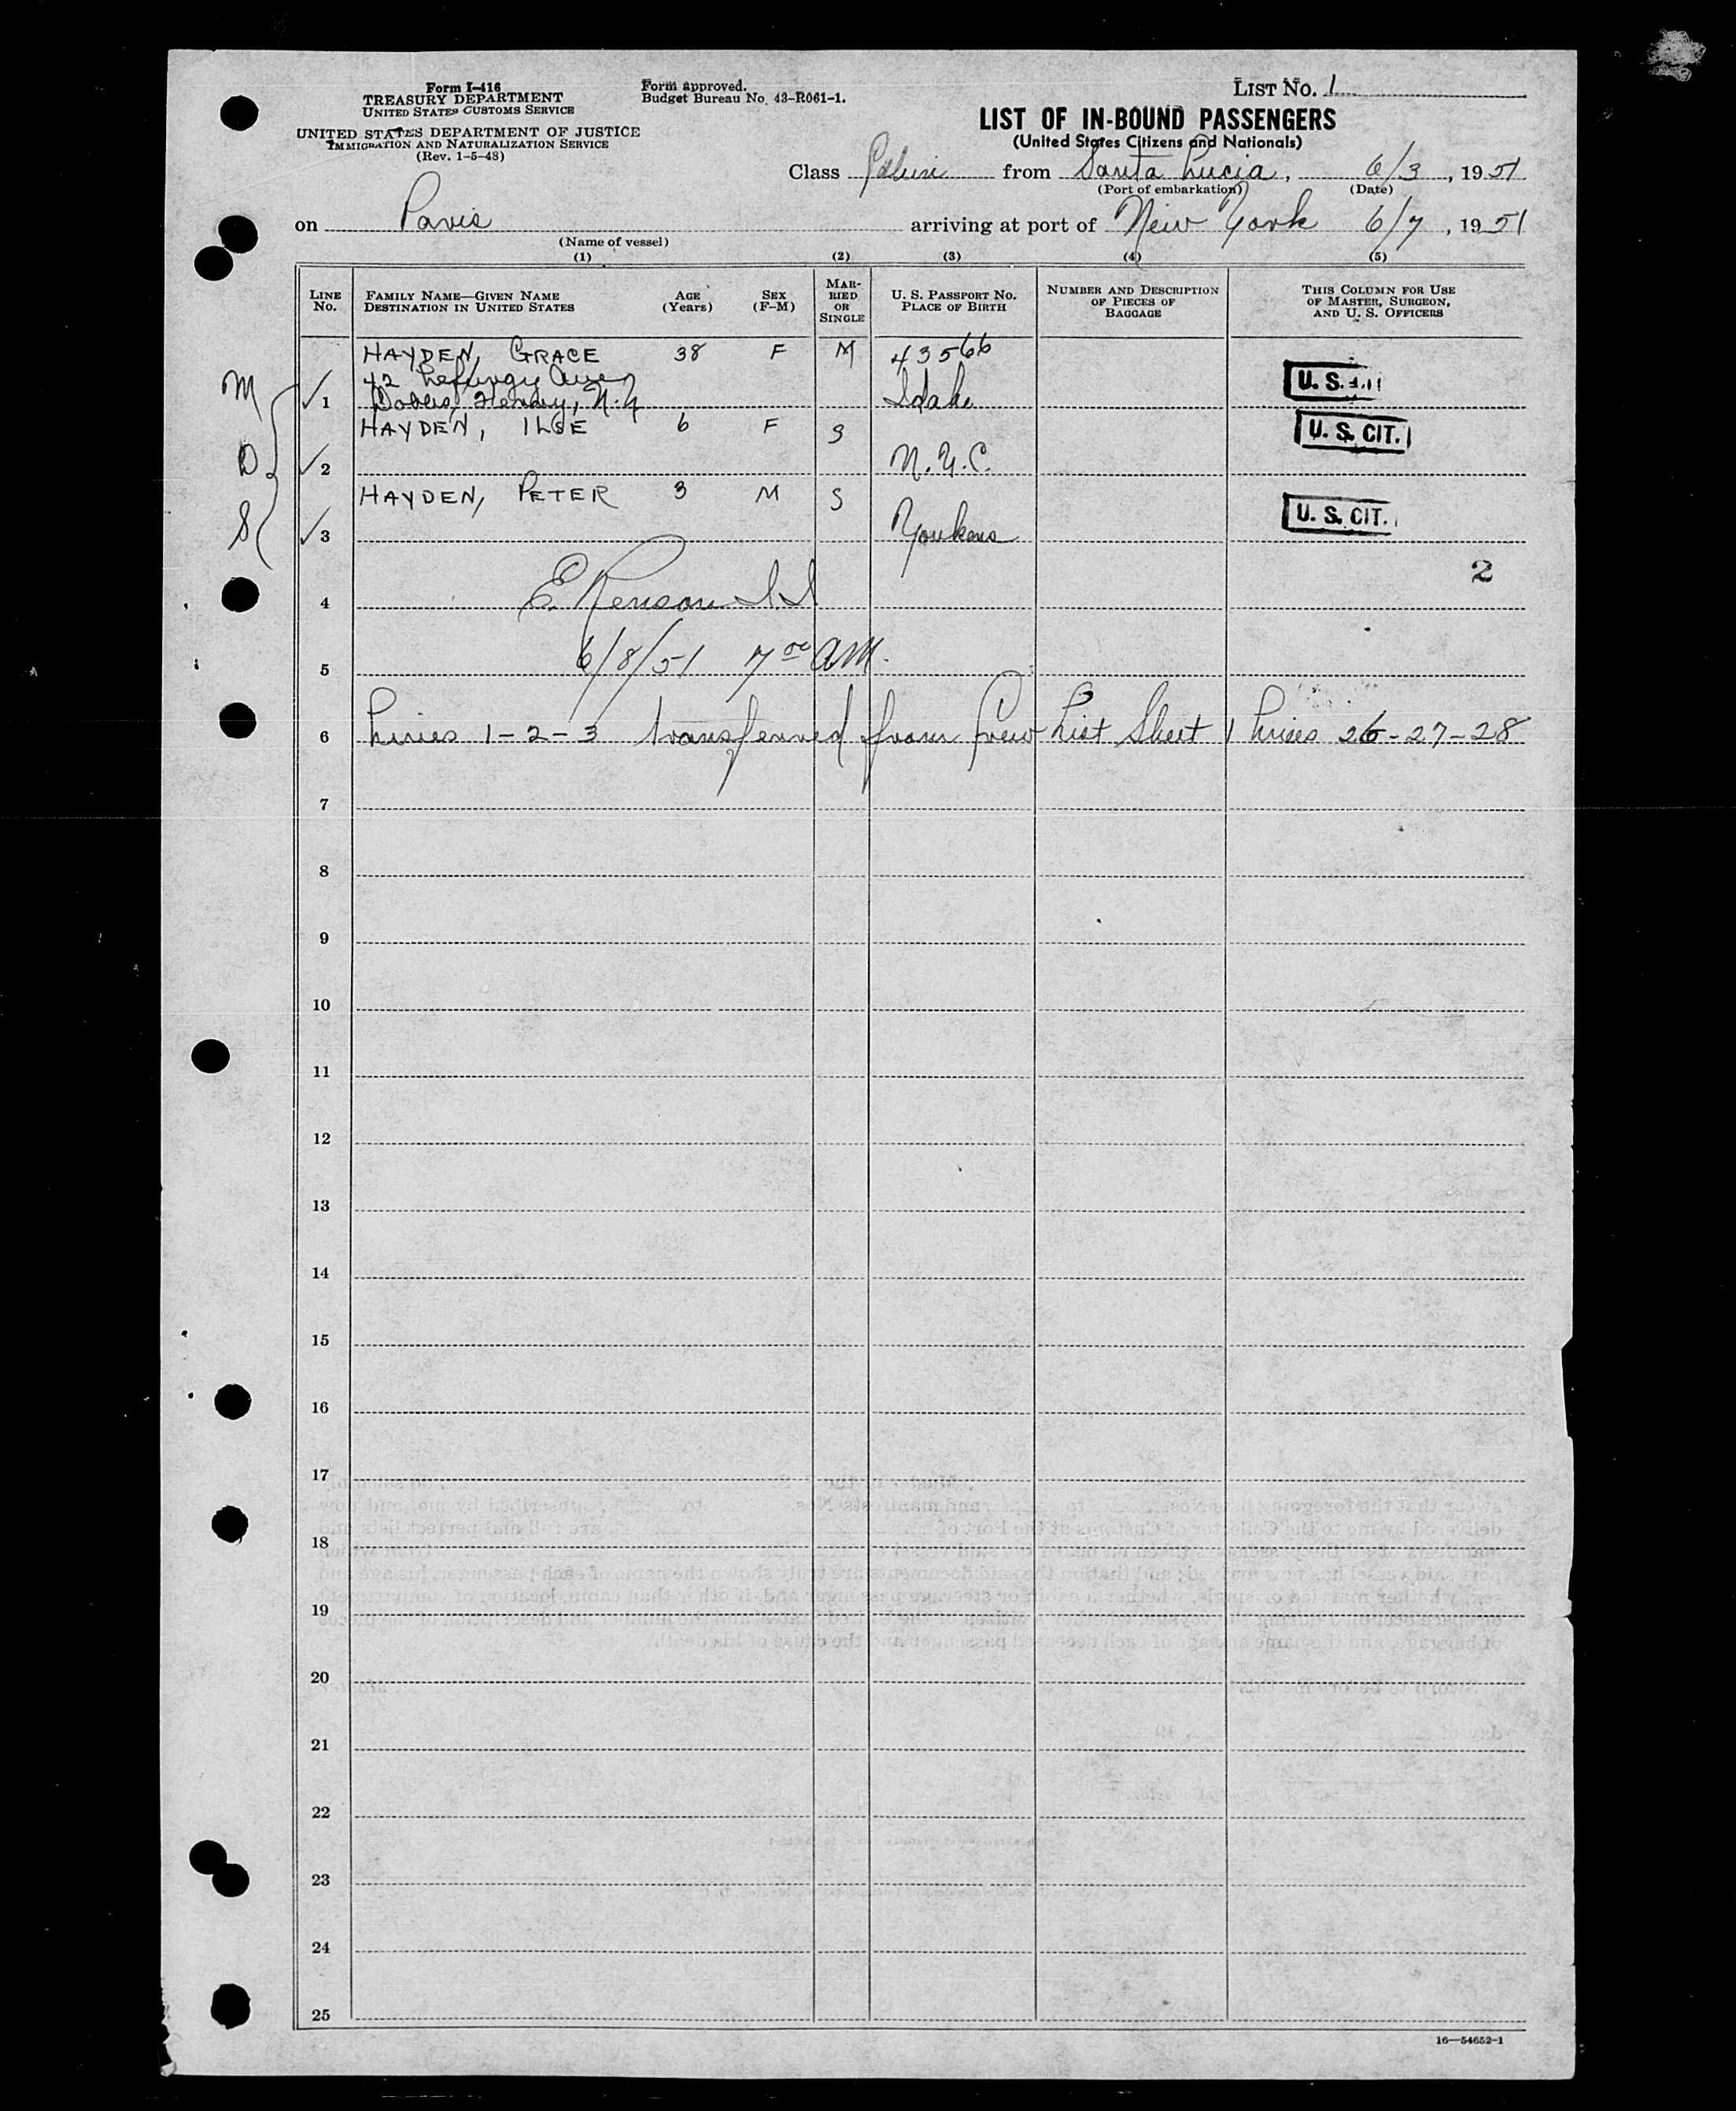 Form I-416
TREASURY DEPARTMENT
UNITED STATES CUSTOMS SERVICE
UNITED STATES DEPARTMENT OF JUSTICE
IMMIGRATION AND NATURALIZATION SERVICE
(Rev. 1-5-48)
Form approved.
Budget Bureau No. 43-R061-1.
LIST No. 1
LIST OF IN-BOUND PASSENGERS
(United States Citizens and Nationals)
Class from Santa Lucia, 6/3, 1951
(Port of embarkation) (Date)
on arriving at port of New York 6/7, 1951
(Name of vessel)
(1) (2) (3) (4) (5)
LINE No.
FAMILY NAME—GIVEN NAME DESTINATION IN UNITED STATES
AGE (Years)
SEX (F-M)
MARRIED OR SINGLE
U. S. PASSPORT No. PLACE OF BIRTH
NUMBER AND DESCRIPTION OF PIECES OF BAGGAGE
THIS COLUMN FOR USE OF MASTER, SURGEON, AND U. S. OFFICERS
HAYDEN, GRACE 38 F M 43566
42 Lefurgy Ave U. S.
M 1 Idaho
HAYDEN, ILSE 6 F S U. S. CIT.
D 2 N.Y.C.
HAYDEN, PETER 3 M S U. S. CIT.
S 3 Yonkers
2
4
5 6/8/51 7 00 AM.
6 Lines 1-2-3 transferred from Crew List Sheet 1 Lines 26-27-28
7
8
9
10
11
12
13
14
15
16
17
18
19
20
21
22
23
24
25
16—54652-1